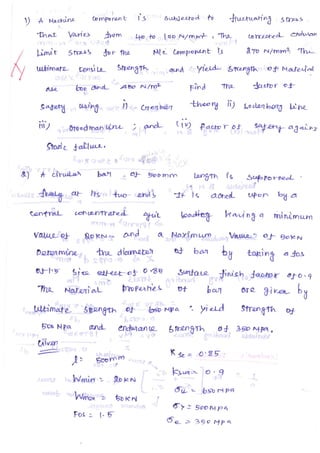 1) A Machine Component is subjected to fluctuating stress
That Varies from 40 to 100 N/mm². The corrected endurance
Limit stress for the M/c Component is 270 N/mm² The
ultimate tensile strength and yield strength of Material
are 600 and 450 N/m² Find The factor of
safety using i) Gerber theory ii) Soderberg Line
iii) Goodman Line ; and (iv) Factor of safety against
Static failure.
2) A circular bar of 500mm length is supported
freely at its two ends It is acted upon by a
central concentrated load Having a minimum
Value of 20KN and a Maximum Value of 50KN
Determine the diameter of bar by taking a fos
of 1.5 size effect of 0.85 surface finish factor of 0.9
The Material Properties of bar are given by
ultimate strength of 650 MPa yield strength of
500 MPa and endurance strength of 350 MPa.
Given
l = 500mm
Wmin = 20KN
Wmax = 50KN
Fos = 1.5
Ksz = 0.85
Ksur = 0.9
σu = 650MPa
σy = 500MPa
σe = 350 MPa